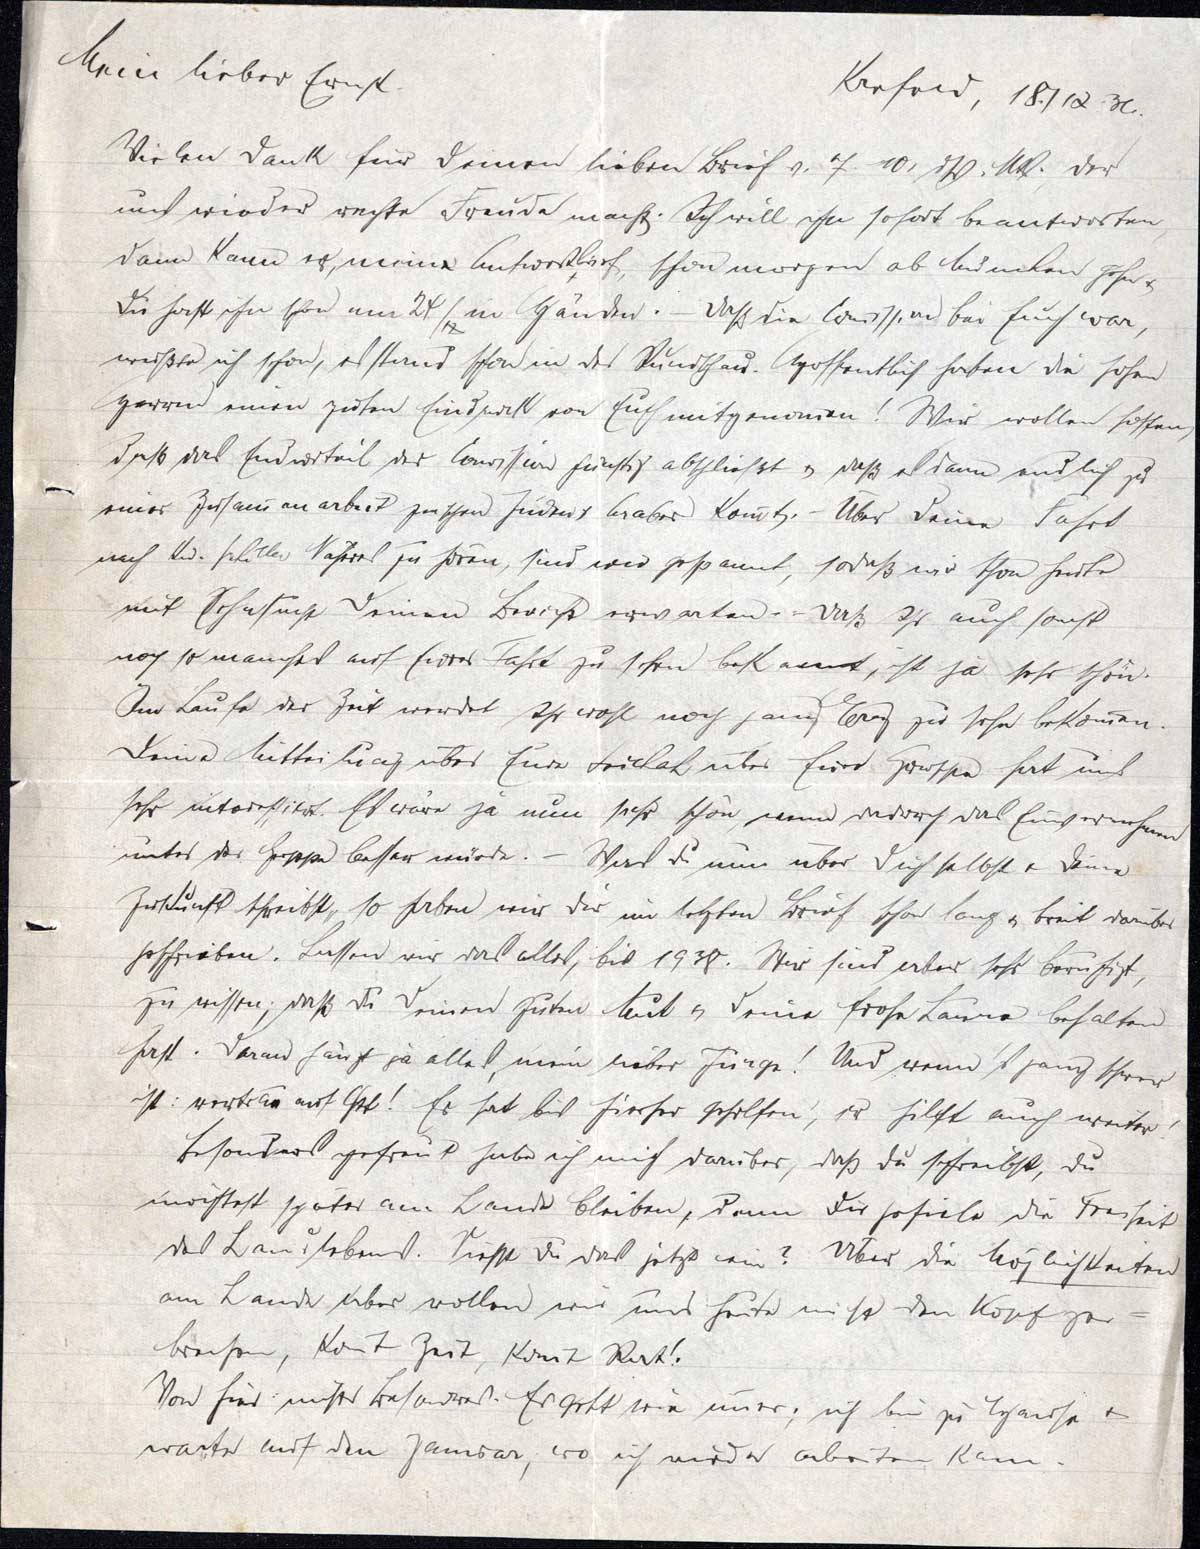 Mein lieber Ernst.
Krefeld, 18./12.36.
Vielen Dank für Deinen lieben Brief v. 7. 10. ds. Mts. der
uns wieder rechte Freude macht. Ich will ihn sofort beantworten,
dann kann er, meine Antwortbrief, schon morgen ab München gehn &
Du hast ihn schon am 24/12 in Händen. – Daß die Comission bei Euch war,
wußte ich schon, es stand schon in der Rundschau. Hoffentlich haben die hohen
Herren einen guten Eindruck von Euch mitgenommen! Wir wollen hoffen,
daß das Endurteil der Comission günstig abschließt & daß es dann endlich zu
einer Zusammenarbeit zwischen Juden & Araber kommt. – Über Deine Fahrt
nach Näheres zu hören, sind wir gespannt, sodaß wir schon heute
mit Sehnsucht Deinen Bericht erwarten. – Daß Ihr auch sonst
noch so manches auf Eurer Fahrt zu sehen bekamt, ist ja sehr schön.
Im Laufe der Zeit werdet Ihr wohl noch ganz Erez zu sehn bekommen.
Deine Mitteilung über Eure über Eure Gruppe hat uns
sehr interessiert. Es wäre ja nun sehr schön, wenn dadurch das Einvernehmen
unter der Gruppe besser würde. – Was Du nun über Dich selbst & Deine
Zukunft schreibst, so haben wir Dir im letzten Brief schon lang & breit darüber
geschrieben. Lassen wir das alles, bis 1938. Wir sind aber sehr beruhigt,
zu wissen, daß Du Deinen guten Mut & Deine frohe Laune behalten
hast. Daran hängt ja alles, mein lieber Junge! Und wenn's ganz schwer
ist: vertrau auf Gott! Er hat bis hierher geholfen, er hilft auch weiter!
Besonders gefreut habe ich mich darüber, daß Du schreibst, Du
möchtest später am Lande bleiben, denn Dir gefiele die Freiheit
des Landlebens. Siehst Du das jetzt ein? Über die Möglichkeiten
am Lande aber wollen wir uns heute nicht den Kopf zer=
brechen, kommt Zeit, kommt Rat!
Von hier nichts Besondres. Es geht wie immer; ich bin zu Hause &
warte auf den Januar, wo ich wieder arbeiten kann.